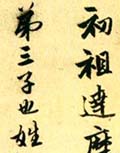 初祖達磨
第三子也姓